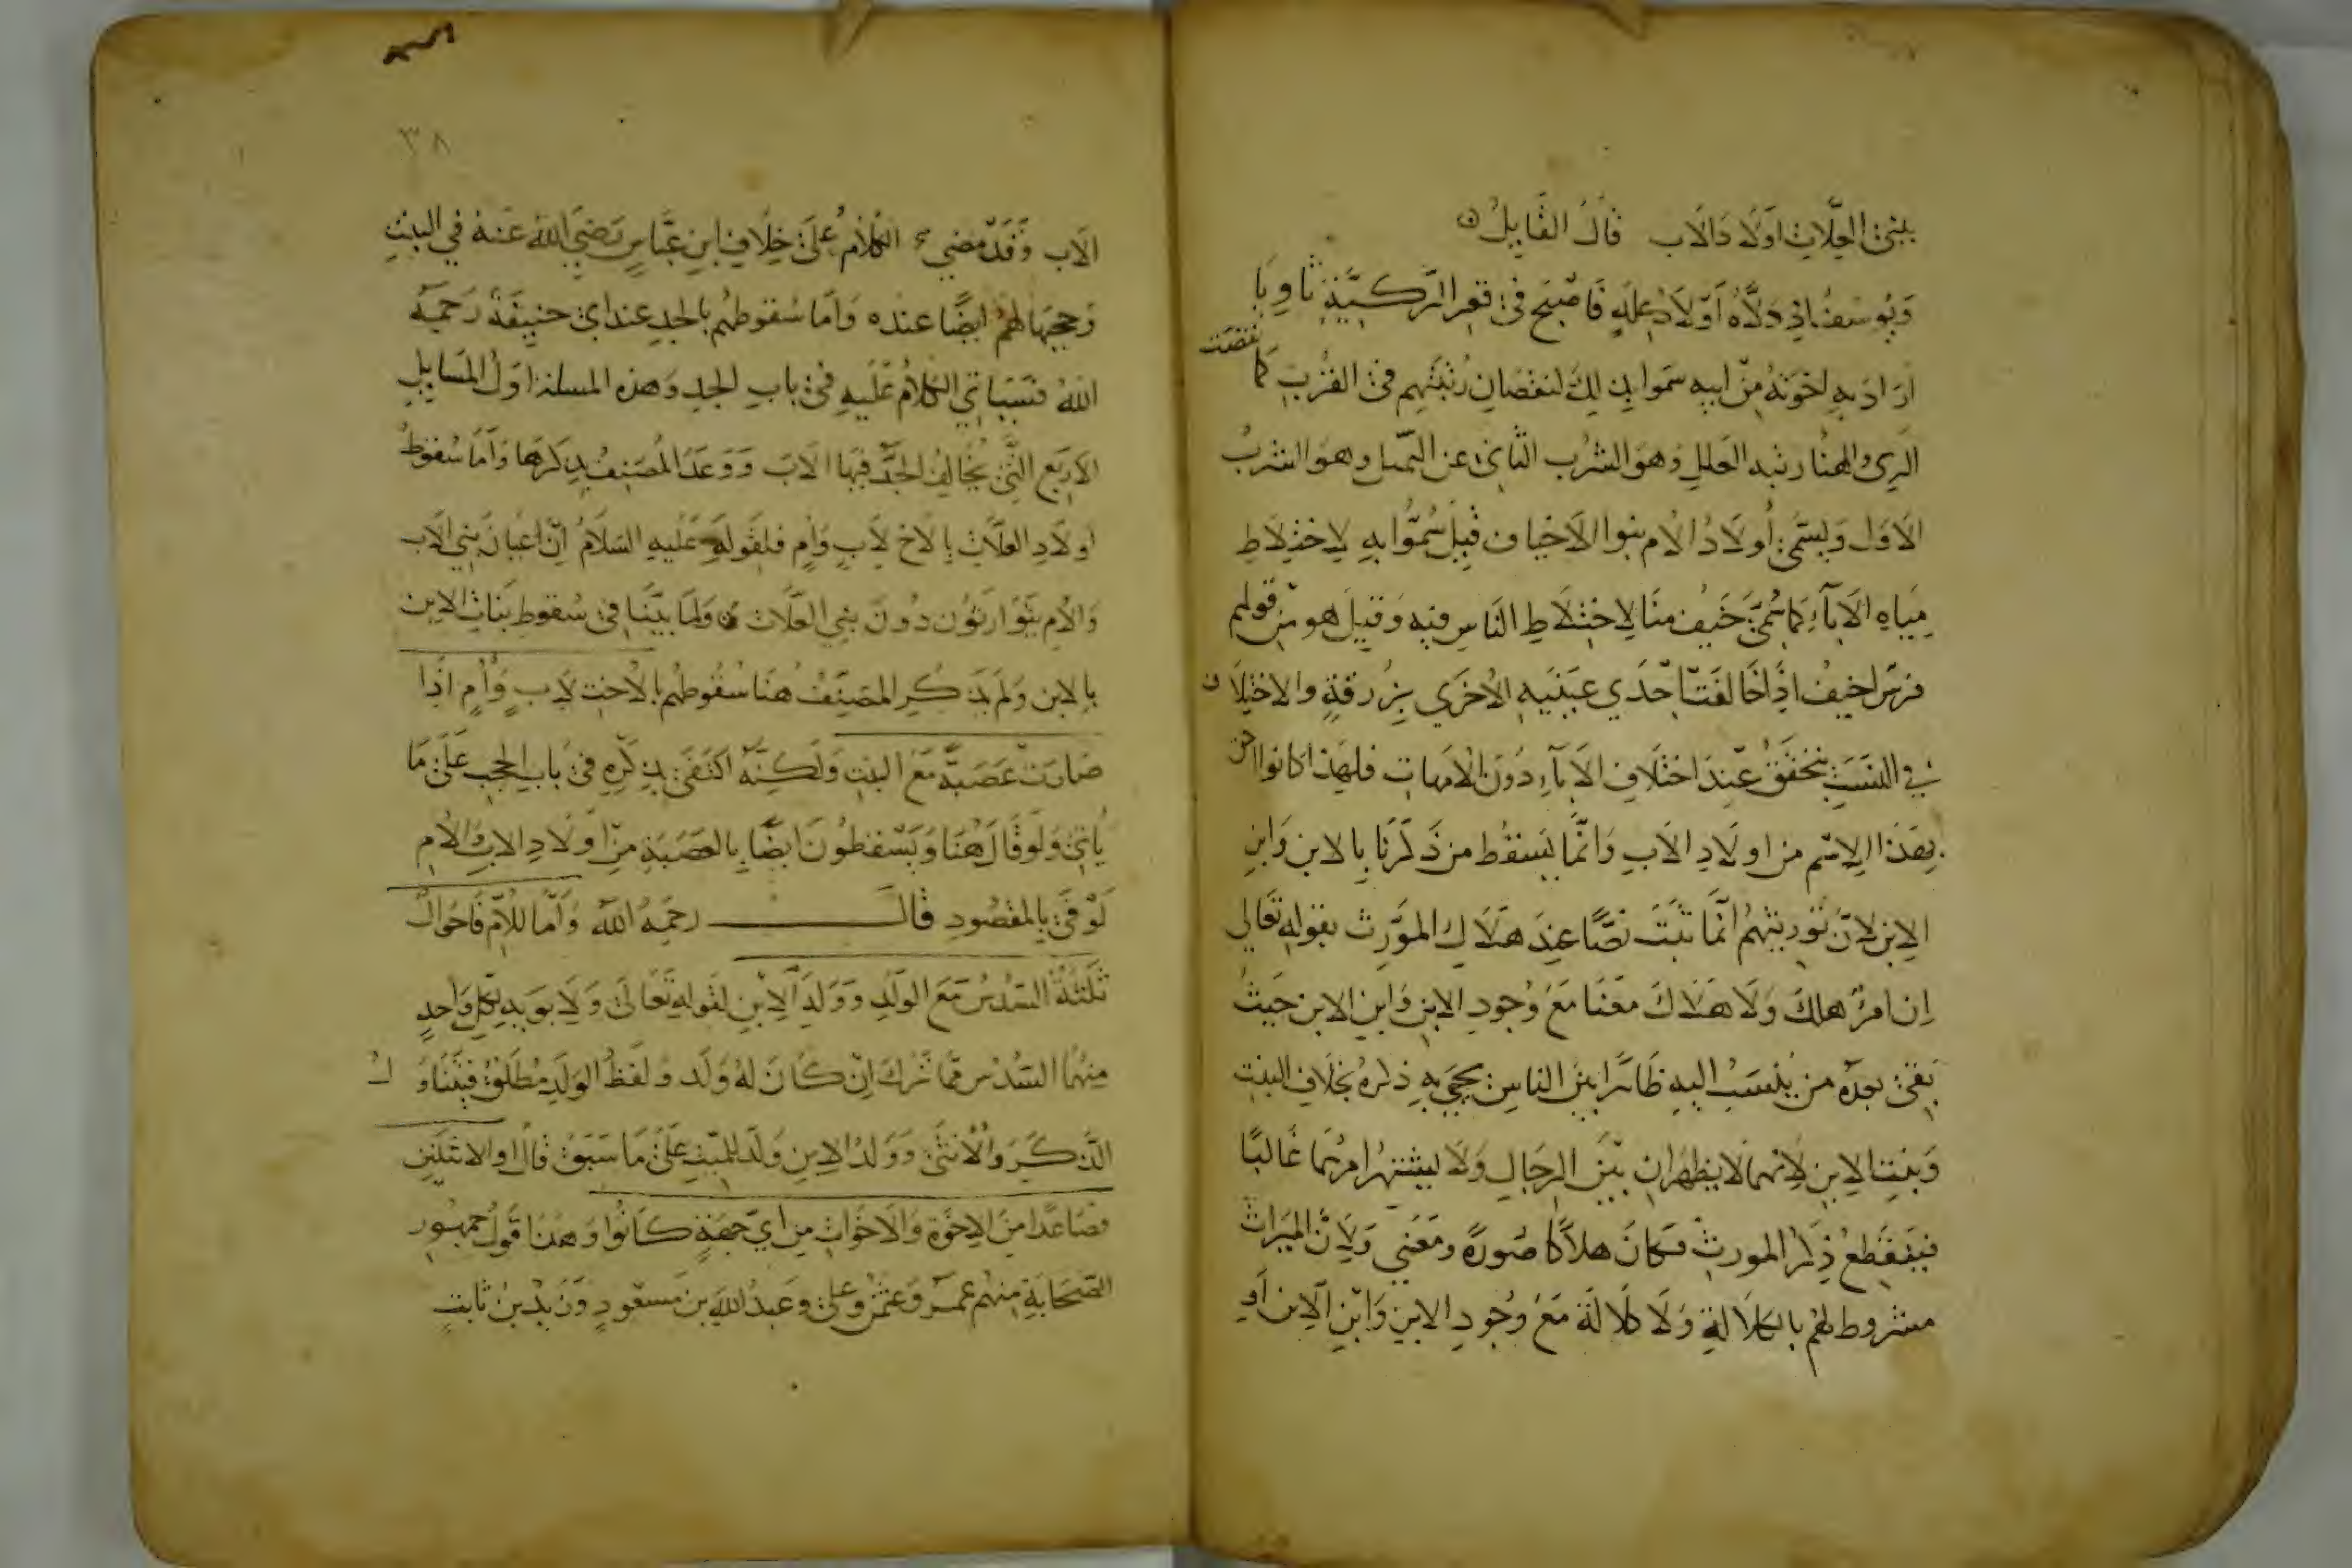 بني العلات اولاد الاب قال القايل
ويوسف اذ دلاه اولاد علة فاصبح في قعر الركية ثاويا
اراد به اخوته من ابيه سموا بذلك لنقصان رتبتهم في القرب كما نقصت
الري والهنا رتبه العلل وهو الشرب الثاني عن النهل وهو الشرب
الاول ويسمى اولاد الام بنوا الاخياف قيل سموا به لاختلاط
مياه الاباء كما سمى خيف منا لاختلاط الناس فيه وقيل هو من قولهم
فرس اخيف اذا خالفت احدي عينيه الاخري بزرقة والاختلاف
في النسب يتحقق عند اختلاف الاباء دون الامهات فلهذا كانوا احق
بهذا الاسم من اولاد الاب وانما يسقط من ذكرنا بالابن وابن
الابن لان توريثهم انما ثبت نصا عند هلاك المورث بقوله تعالي
ان امرؤ هلك ولا هلاك معنا مع وجود الابن وابن الابن حيث
بقى بعده من ينسب اليه ظاهرا بين الناس يحيى به ذكره بخلاف البنت
وبنت الابن لانهما لا يظهران بين الرجال ولا يشتهر امرهما غالبا
فينقطع ذكر المورث فكان هلاكا صورة ومعني ولان الميراث
مشروط لهم بالكلالة ولا كلالة مع وجود الابن وابن الابن او
٣٨
الاب وقد مضي الكلام على خلاف ابن عباس رضي الله عنه في البنت
وحجبها لهم ايضا عنده واما سقوطهم بالجد عند ابي حنيفة رحمه
الله فسياتي الكلام عليه في باب الجد وهذه المسلة اول المسايل
الاربع التي يخالف الجد فيها الاب ووعد المصنف بذكرها واما سقوط
اولاد العلات بالاخ لاب وام فلقوله عليه السلام ان اعيان بني الاب
والام يتوارثون دون بني العلات ولما بينا في سقوط بنات الابن
بالابن ولم يذكر المصنف هنا سقوطهم بالاخت لاب وام اذا
صارت عصبة مع البنت ولكنه اكتفى بذكره في باب الحجب على ما
ياتي ولو قال هنا ويسقطون ايضا بالعصبة من اولاد الاب والام
لوفى بالمقصود قال رحمه الله واما للام فاحوال
ثلثة السدس مع الولد وولد الابن لقوله تعالى ولابويه لكل واحد
منهما السدس مما ترك ان كان له ولد ولفظ الولد مطلق فيتناول
الذكر والانثى وولد الابن ولد للميت على ما سبق قال او الاثنين
فصاعدا من الاخوة والاخوات من اي جهة كانوا وهذا قول جمهور
الصحابة منهم عمر وعثمن وعلي وعبد الله بن مسعود وزيد بن ثابت